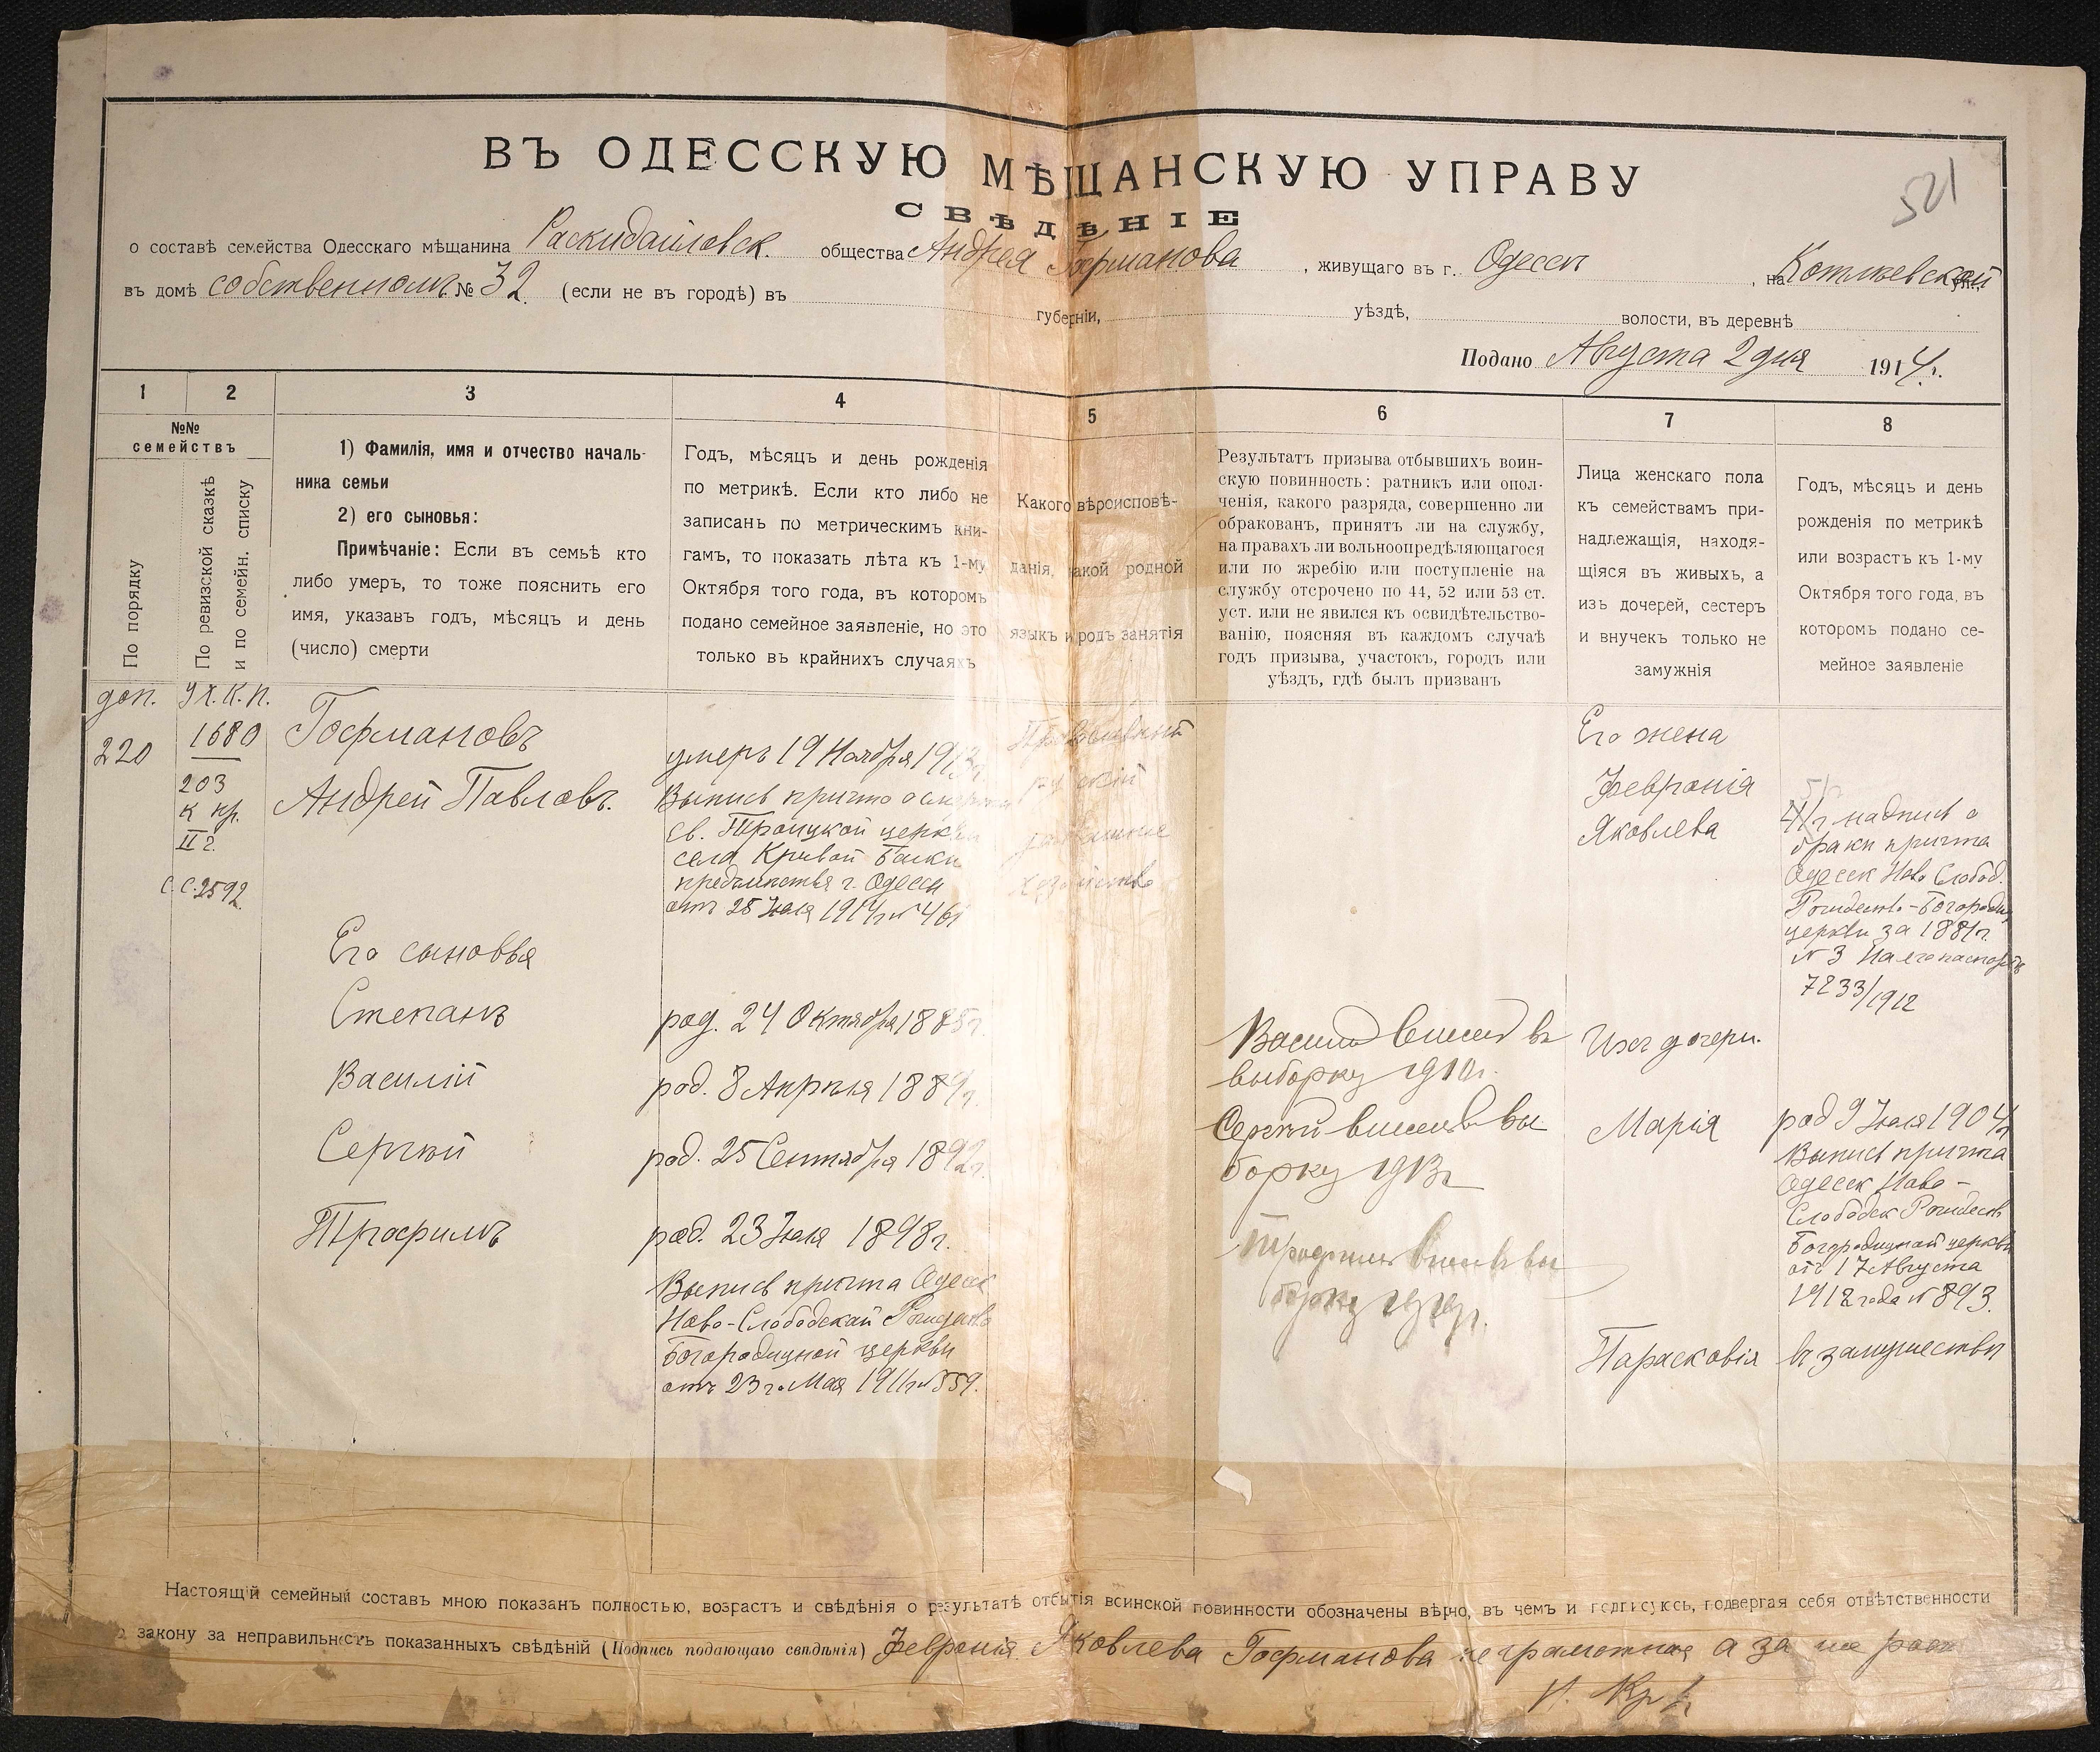 521
ВЪ ОДЕССКУЮ МѢЩАНСКУЮ УПРАВУ
СВѢДѢНІЕ
о составѣ семейства Одесскаго мѣщанина Раскидайловск. общества Андрея Гофманова, живущаго въ г. Одессѣ, на Котлевской ул.,
въ домѣ собственномъ № 32 (если не въ городѣ) въ губерніи, уѣздѣ, волости, въ деревнѣ
Подано Августа 2 дня 1914 г.
1 2 3 4 5 6 7 8
№№
семействъ
По порядку
По ревизской сказкѣ
и по семейн. списку
1) Фамилія, имя и отчество началь-
ника семьи
2) его сыновья:
Примѣчаніе: Если въ семьѣ кто
либо умеръ, то тоже пояснить его
имя, указавъ годъ, мѣсяцъ и день
(число) смерти
Годъ, мѣсяцъ и день рожденія
по метрикѣ. Если кто либо не
записанъ по метрическимъ кни-
гамъ, то показать лѣта къ 1-му
Октября того года, въ которомъ
подано семейное заявленіе, но это
только въ крайнихъ случаяхъ
Какого вѣроисповѣ-
данія, какой родной
языкъ и родъ занятія
Результатъ призыва отбывшихъ воин-
скую повинность: ратникъ или опол-
ченія, какого разряда, совершенно ли
обракованъ, принятъ ли на службу,
на правахъ ли вольноопредѣляющагося
или по жребію или поступленіе на
службу отсрочено по 44, 52 или 53 ст.
уст. или не явился къ освидѣтельство-
ванію, поясняя въ каждомъ случаѣ
годъ призыва, участокъ, городъ или
уѣздъ, гдѣ былъ призванъ
Лица женскаго пола
къ семействамъ при-
надлежащія, находя-
щіяся въ живыхъ, а
изъ дочерей, сестеръ
и внучекъ только не
замужнія
Годъ, мѣсяцъ и день
рожденія по метрикѣ
или возрастъ къ 1-му
Октября того года, въ
которомъ подано се-
мейное заявленіе
доп.
220
1680
203
К пр.
II г.
С.С. 2592
Гофмановъ
Андрей Павловъ.
Его сыновья
Степанъ
Василій
Сергѣй
Трофимъ
умеръ 19 Ноября 1913 г.
Выпись причта о смерти
Св. Троицкой церкви
села Кривой Балки
предмѣстья г. Одессы
отъ 28 Іюля 1914 г № 461
род. 24 Октября 1885 г.
род. 8 Апрѣля 1889 г.
род. 25 Сентября 1892 г.
род. 23 Іюля 1898 г.
Выпись причта Одесск
Ново-Слободской Рождество
Богородичной церкви
отъ 23 го Мая 1911 г № 559.
Православный
русскій
домашнее
хозяйство
Василій внесенъ въ
выборку 1910 г.
Сергѣй внесенъ въ вы
борку 1913 г
Трофимъ внесенъ въ вы
борку 1919 г.
Его жена
Февронія
Яковлева
Ихъ дочери.
Марія
Парасковія
надпись о
бракѣ причта
Одесск Ново Слобод.
Рождество-Богородич
церкви за 1881 г.
№ 3 На его паспортѣ
7233/1912
род 9 Іюля 1904 г
Выпись причта
Одесск Ново-
Слободск Рождеств
Богородичной церкви
отъ 17 Августа
1912 года № 893.
въ замужествѣ
Настоящій семейный составъ мною показанъ полностью, возрастъ и свѣдѣнія о результатѣ отбытія воинской повинности обозначены вѣрно, въ чемъ и подписуюсь, подвергая себя отвѣтственности
закону за неправильность показанныхъ свѣдѣній (Подпись подающаго свѣдѣнія) Февронія Яковлева Гофманова неграмотная а за нее